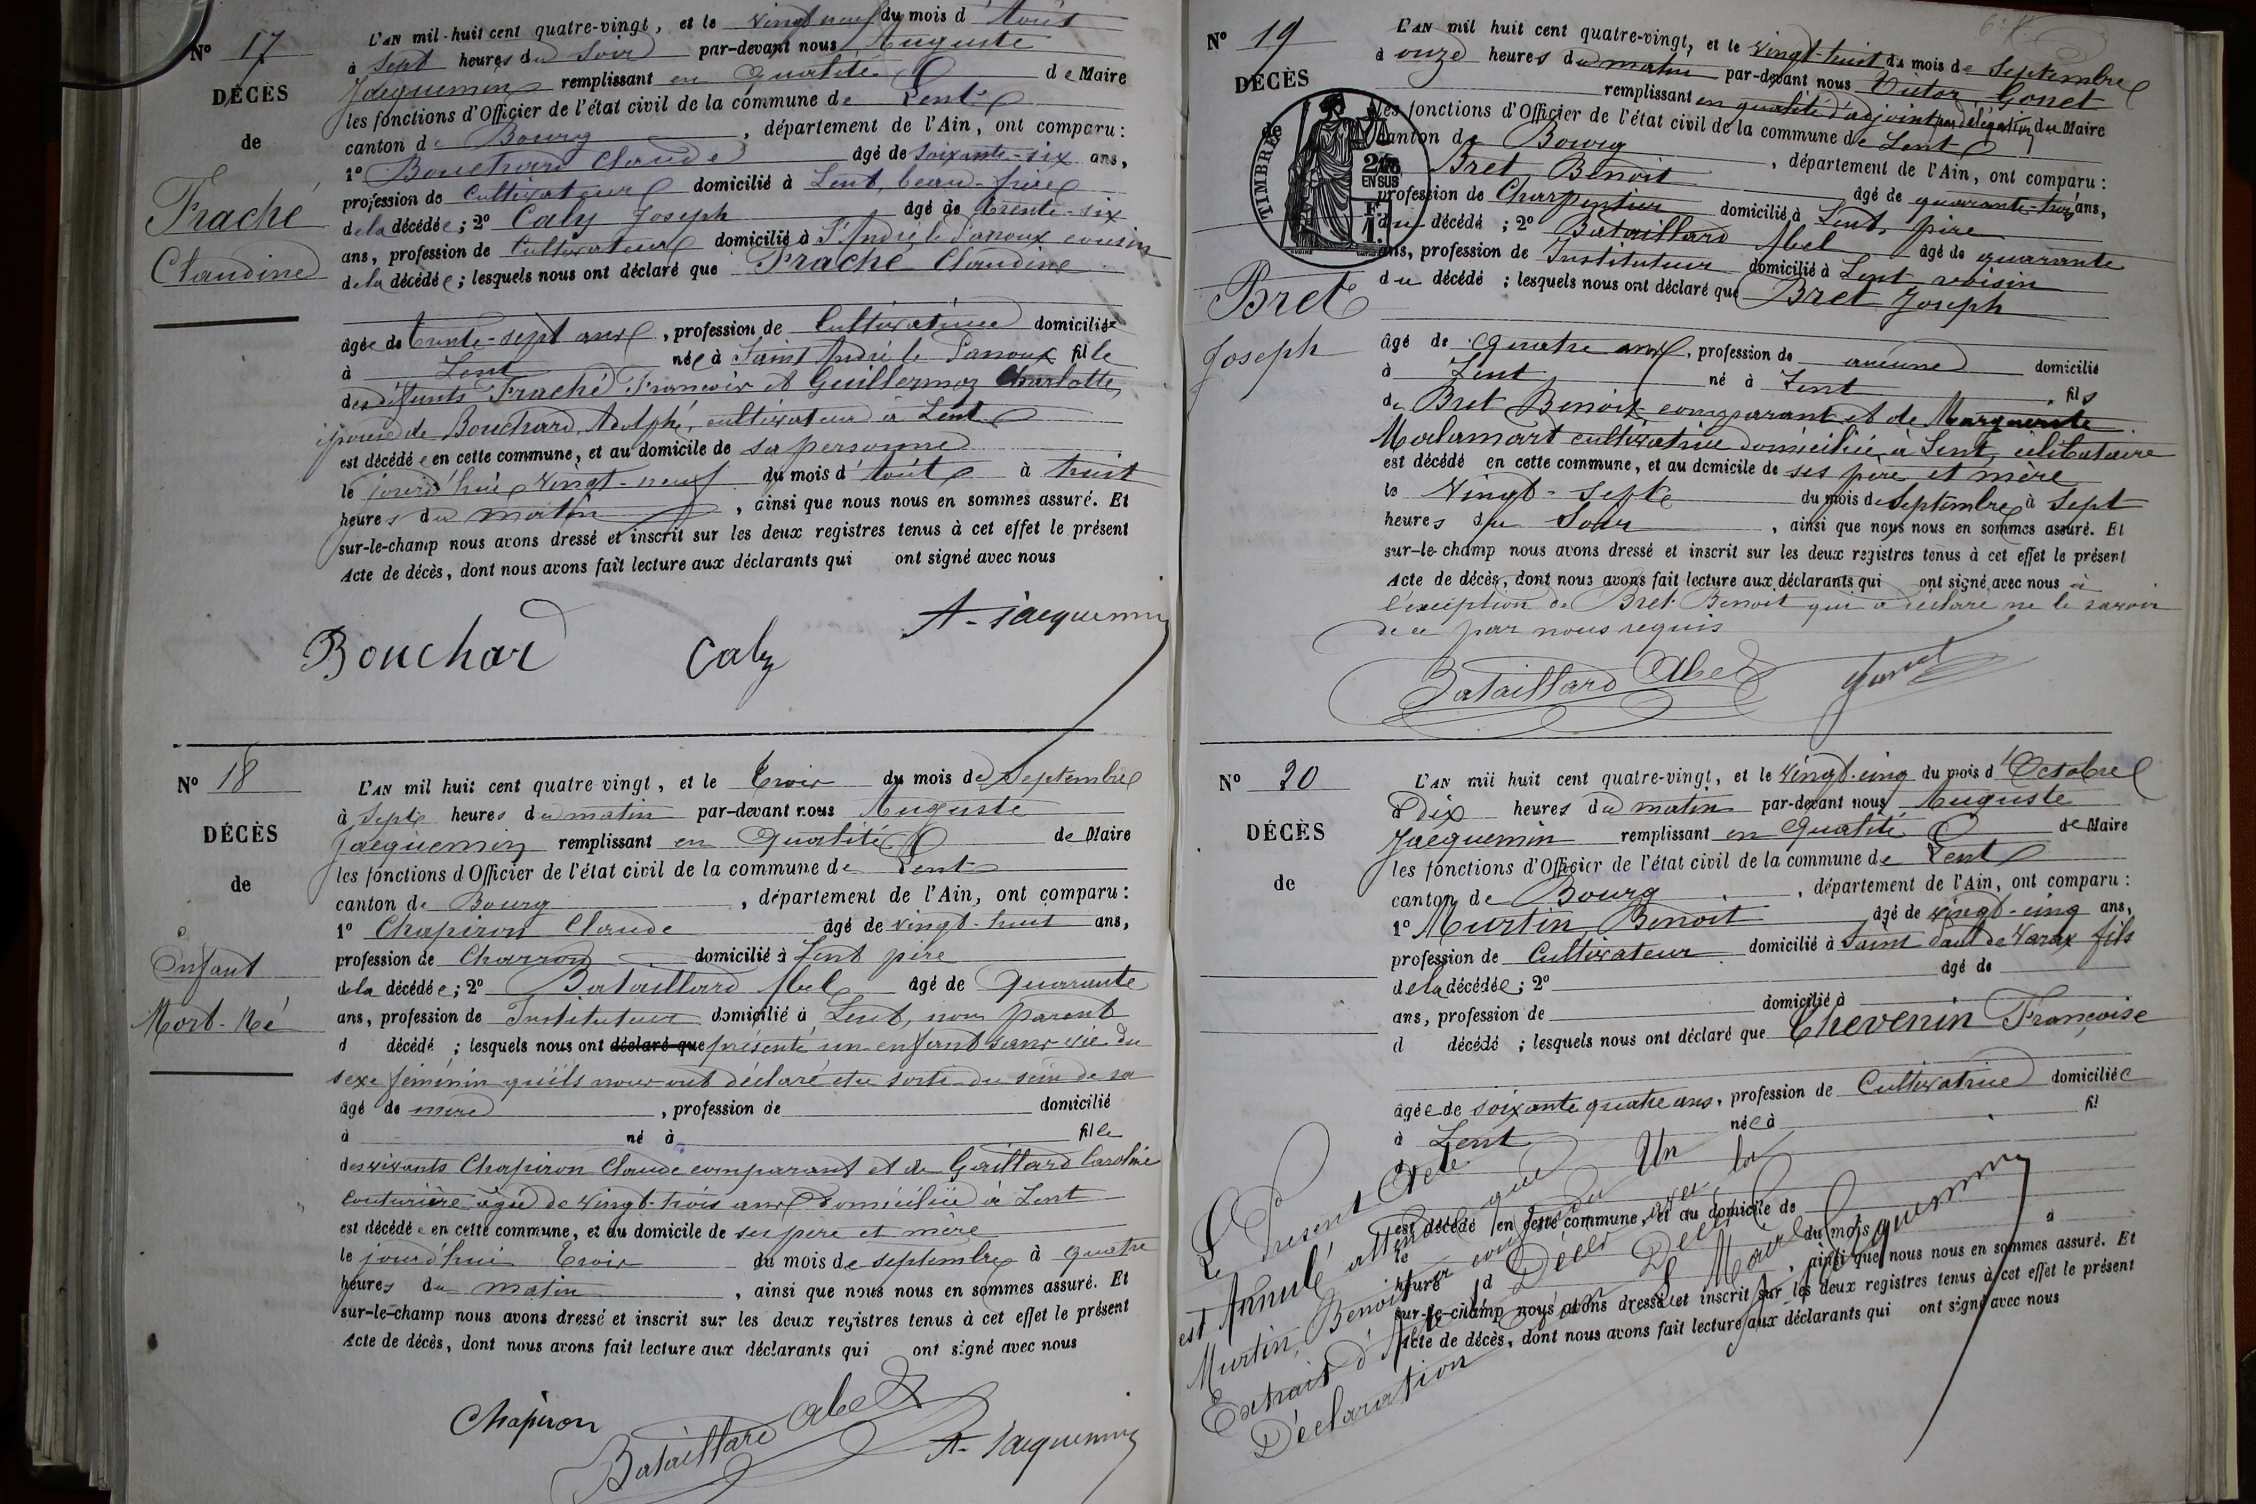 N° 17
DÉCÈS
de
Fraché
Claudine
L'AN mil huit cent quatre-vingt, et le vingt neuf du mois d'Août
à sept heures du soir par-devant nous Auguste
Jacquemin remplissant en qualité de Maire
les fonctions d'Officier de l'état civil de la commune de Lent
canton de Bourg, département de l'Ain, ont comparu:
1° Bouchard Claude âgé de soixante-six ans,
profession de cultivateur domicilié à Lent, beau-frère
de la décédée; 2° Caly Joseph âgé de trente-six
ans, profession de Cultivateur domicilié à St André le Panoux cousin
de la décédée; lesquels nous ont déclaré que Fraché Claudine
âgée de trente-sept ans, profession de Cultivatrice domiciliée
à Lent née à Saint André le Panoux fille
des défunts Fraché François et Guillermoz Charlotte,
épouse de Bouchard Adolphe, cultivateur à Lent
est décédée en cette commune, et au domicile de sa personne
le jourd'hui vingt-neuf du mois d'Août à huit
heures du matin, ainsi que nous nous en sommes assuré. Et
sur-le-champ nous avons dressé et inscrit sur les deux registres tenus à cet effet le présent
Acte de décès, dont nous avons fait lecture aux déclarants qui ont signé avec nous
Bouchard Caly A. Jacquemin
N° 18
DÉCÈS
de
Enfant
Mort-Né
L'AN mil huit cent quatre-vingt, et le Trois du mois de Septembre
à Sept heures du matin par-devant nous Auguste
Jacquemin remplissant en Qualité de Maire
les fonctions d'Officier de l'état civil de la commune de Lent
canton de Bourg, département de l'Ain, ont comparu:
1° Chapiron Claude âgé de vingt-huit ans,
profession de Charron domicilié à Lent père
de la décédée; 2° Bataillard Abel âgé de Quarante
ans, profession de Instituteur domicilié à Lent, non parent
d décédé; lesquels nous ont déclaré que présenté un enfant sans vie du
sexe féminin qu'ils nous ont déclaré être sorti du sein de sa
âgé de mère, profession de domicilié
à né à fille
des vivants Chapiron Claude comparant et de Gaillard Caroline
Couturière âgée de vingt-trois ans domiciliée à Lent
est décédée en cette commune, et au domicile de ses père et mère
le jourd'hui Trois du mois de septembre à quatre
heures du matin, ainsi que nous nous en sommes assuré. Et
sur-le-champ nous avons dressé et inscrit sur les deux registres tenus à cet effet le présent
Acte de décès, dont nous avons fait lecture aux déclarants qui ont signé avec nous
Chapiron Bataillard Abel A. Jacquemin
N° 19
DÉCÈS
TIMBRE
EN SUS
Bret
Joseph
L'AN mil huit cent quatre-vingt, et le vingt-huit du mois de Septembre
à onze heures du matin par-devant nous Victor Gonet
remplissant en qualité d'adjoint par délégation du Maire
les fonctions d'Officier de l'état civil de la commune de Lent
canton de Bourg, département de l'Ain, ont comparu:
Bret Benoit âgé de quarante-trois ans,
profession de Charpentier domicilié à Lent, père
du décédé; 2° Bataillard Abel âgé de quarante
ans, profession de Instituteur domicilié à Lent voisin
du décédé; lesquels nous ont déclaré que Bret Joseph
âgé de quatre ans, profession de aucune domicilié
à Lent né à Lent fils
de Bret Benoit comparant et de Marguerite
Malamart cultivatrice domiciliée à Lent, célibataire
est décédé en cette commune, et au domicile de ses père et mère
le vingt-sept du mois de septembre à sept
heures du Soir, ainsi que nous nous en sommes assuré. Et
sur-le-champ nous avons dressé et inscrit sur les deux registres tenus à cet effet le présent
Acte de décès, dont nous avons fait lecture aux déclarants qui ont signé avec nous à
l'exception de Bret Benoit qui a déclaré ne le savoir
de ce par nous requis
Bataillard Abel Gonet
N° 20
DÉCÈS
de
L'AN mil huit cent quatre-vingt, et le vingt-cinq du mois d'Octobre
à dix heures du matin par-devant nous Auguste
Jacquemin remplissant en Qualité de Maire
les fonctions d'Officier de l'état civil de la commune de Lent
canton de Bourg, département de l'Ain, ont comparu:
1° Murtin, Benoit âgé de vingt-cinq ans,
profession de Cultivateur domicilié à Saint Paul de Varax fils
de la décédée; 2° âgé de
ans, profession de domicilié à
d décédé; lesquels nous ont déclaré que Chevenin Françoise
âgée de soixante quatre ans, profession de Cultivatrice domiciliée
à Lent née à fil
est décédé en cette commune, et au domicile de
le du mois à
heure d, ainsi que nous nous en sommes assuré. Et
sur-le-champ nous avons dressé et inscrit sur les deux registres tenus à cet effet le présent
Acte de décès, dont nous avons fait lecture aux déclarants qui ont signé avec nous
Le Présent Acte
est Annulé attendu que
Murtin, Benoit a confondu Un
Extrait d'Acte de Décès avec la
Déclaration d'un Décès
Le Maire
A. Jacquemin